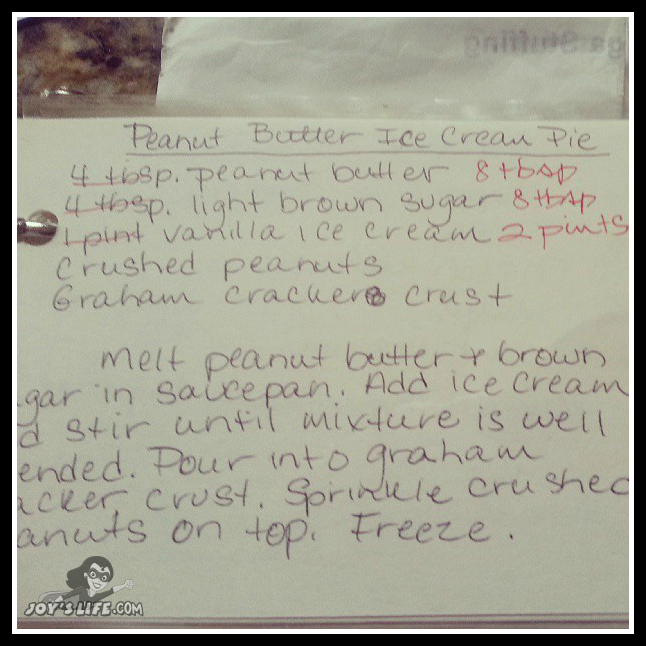 ga Stuffing
Peanut Butter Ice Cream Pie
4 tbsp. peanut butter 8 tbsp
4 tbsp. light brown sugar 8 tbsp
1 pint vanilla ice cream 2 pints
Crushed peanuts
Graham cracker crust
Melt peanut butter + brown
gar in saucepan. Add ice cream
d stir until mixture is well
ended. Pour into graham
acker crust. Sprinkle crushed
anuts on top. Freeze.
JOY'S LIFE.COM